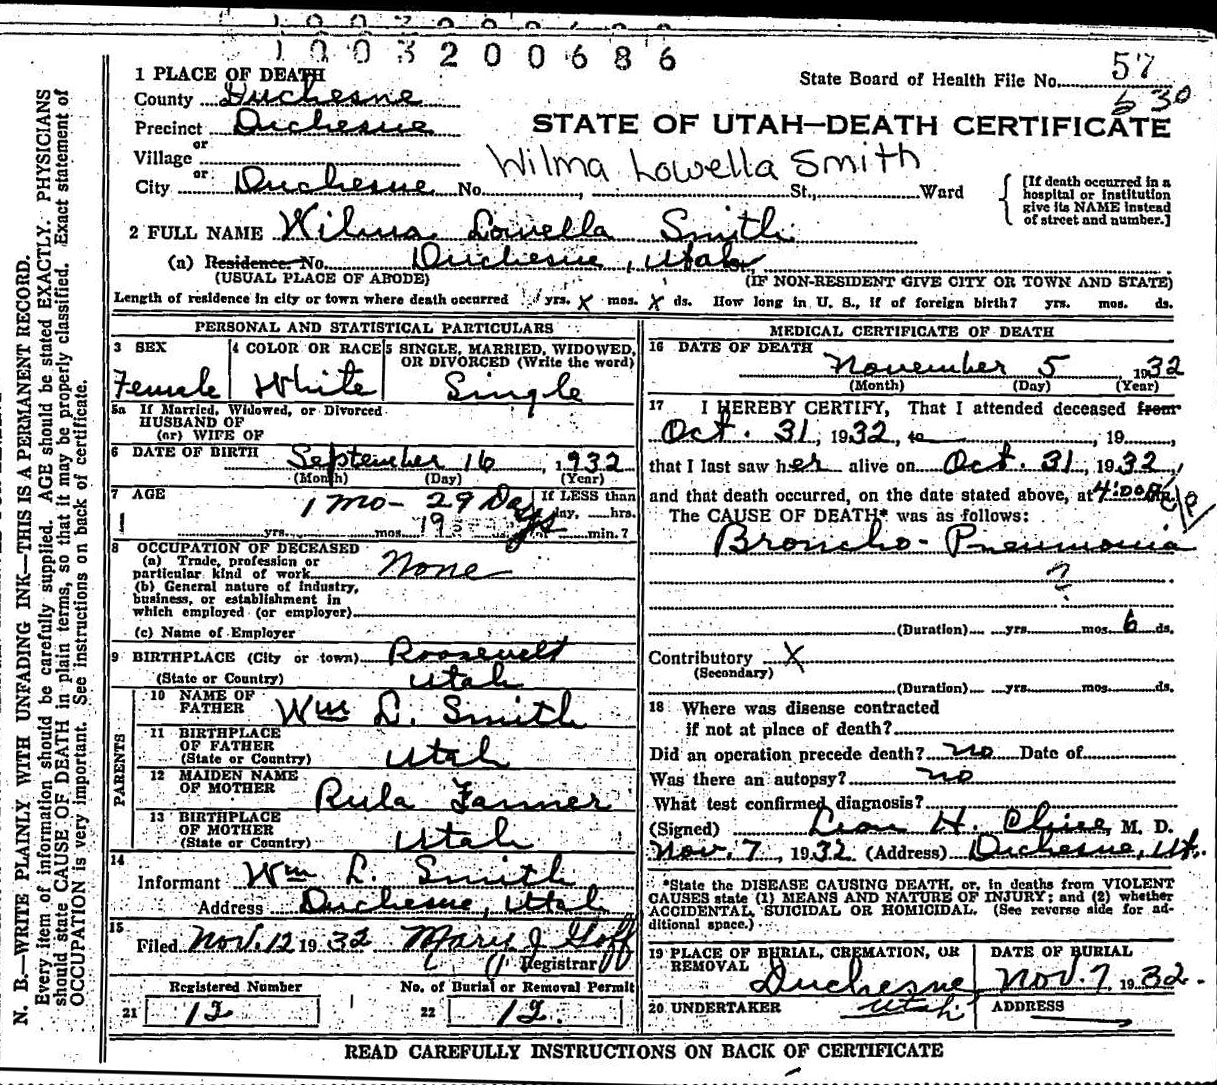 1003200686
1 PLACE OF DEATH
State Board of Health File No. 57
630
County Duchesne
Precinct Duchesne
STATE OF UTAH—DEATH CERTIFICATE
or
Village
Wilma Lowella Smith
or
City Duchesne No. , St., Ward
[If death occurred in a hospital or institution give its NAME instead of street and number.]
2 FULL NAME Wilma Lowella Smith
(a) Residence No. Duchesne, Utah St.,
(USUAL PLACE OF ABODE) (IF NON-RESIDENT GIVE CITY OR TOWN AND STATE)
Length of residence in city or town where death occurred yrs. X mos. X ds. How long in U. S., if of foreign birth? yrs. mos. ds.
PERSONAL AND STATISTICAL PARTICULARS
3 SEX
Female
4 COLOR OR RACE
White
5 SINGLE, MARRIED, WIDOWED,
OR DIVORCED (Write the word)
Single
5a If Married, Widowed, or Divorced
HUSBAND OF
(or) WIFE OF
6 DATE OF BIRTH September 16, 1932
(Month) (Day) (Year)
7 AGE
1 mo - 29 Days
If LESS than
day, hrs.
yrs. mos. 19 min.?
8 OCCUPATION OF DECEASED
(a) Trade, profession or
particular kind of work None
(b) General nature of industry,
business, or establishment in
which employed (or employer)
(c) Name of Employer
9 BIRTHPLACE (City or town) Roosevelt
(State or Country) Utah
PARENTS
10 NAME OF
FATHER Wm L. Smith
11 BIRTHPLACE
OF FATHER
(State or Country) Utah
12 MAIDEN NAME
OF MOTHER Rula Farmer
13 BIRTHPLACE
OF MOTHER
(State or Country) Utah
14
Informant Wm L. Smith
Address Duchesne, Utah
15
Filed Nov. 12 1932 Mary J Goff
Registrar
Registered Number No. of Burial or Removal Permit
21 12 22 12.
MEDICAL CERTIFICATE OF DEATH
16 DATE OF DEATH
November 5 1932
(Month) (Day) (Year)
17 I HEREBY CERTIFY, That I attended deceased from
Oct. 31, 1932, to , 19 ,
that I last saw her alive on Oct. 31, 1932,
and that death occurred, on the date stated above, at 4:00 P
The CAUSE OF DEATH* was as follows:
Broncho-Pneumonia
?
(Duration) yrs. mos. 6 ds.
Contributory X
(Secondary)
(Duration) yrs. mos. ds.
18 Where was disease contracted
if not at place of death?
Did an operation precede death? no Date of
Was there an autopsy? no
What test confirmed diagnosis?
(Signed) H. M. D.
Nov. 7, 1932 (Address) Duchesne, Ut.
*State the DISEASE CAUSING DEATH, or, in deaths from VIOLENT
CAUSES state (1) MEANS AND NATURE OF INJURY; and (2) whether
ACCIDENTAL, SUICIDAL OR HOMICIDAL. (See reverse side for ad-
ditional space.)
19 PLACE OF BURIAL, CREMATION, OR
REMOVAL Duchesne
DATE OF BURIAL
Nov. 7 1932.
20 UNDERTAKER Utah
ADDRESS
READ CAREFULLY INSTRUCTIONS ON BACK OF CERTIFICATE
N. B.—WRITE PLAINLY WITH UNFADING INK—THIS IS A PERMANENT RECORD.
Every item of information should be carefully supplied. AGE should be stated EXACTLY. PHYSICIANS
should state CAUSE OF DEATH in plain terms, so that it may be properly classified. Exact statement of
OCCUPATION is very important. See instructions on back of certificate.